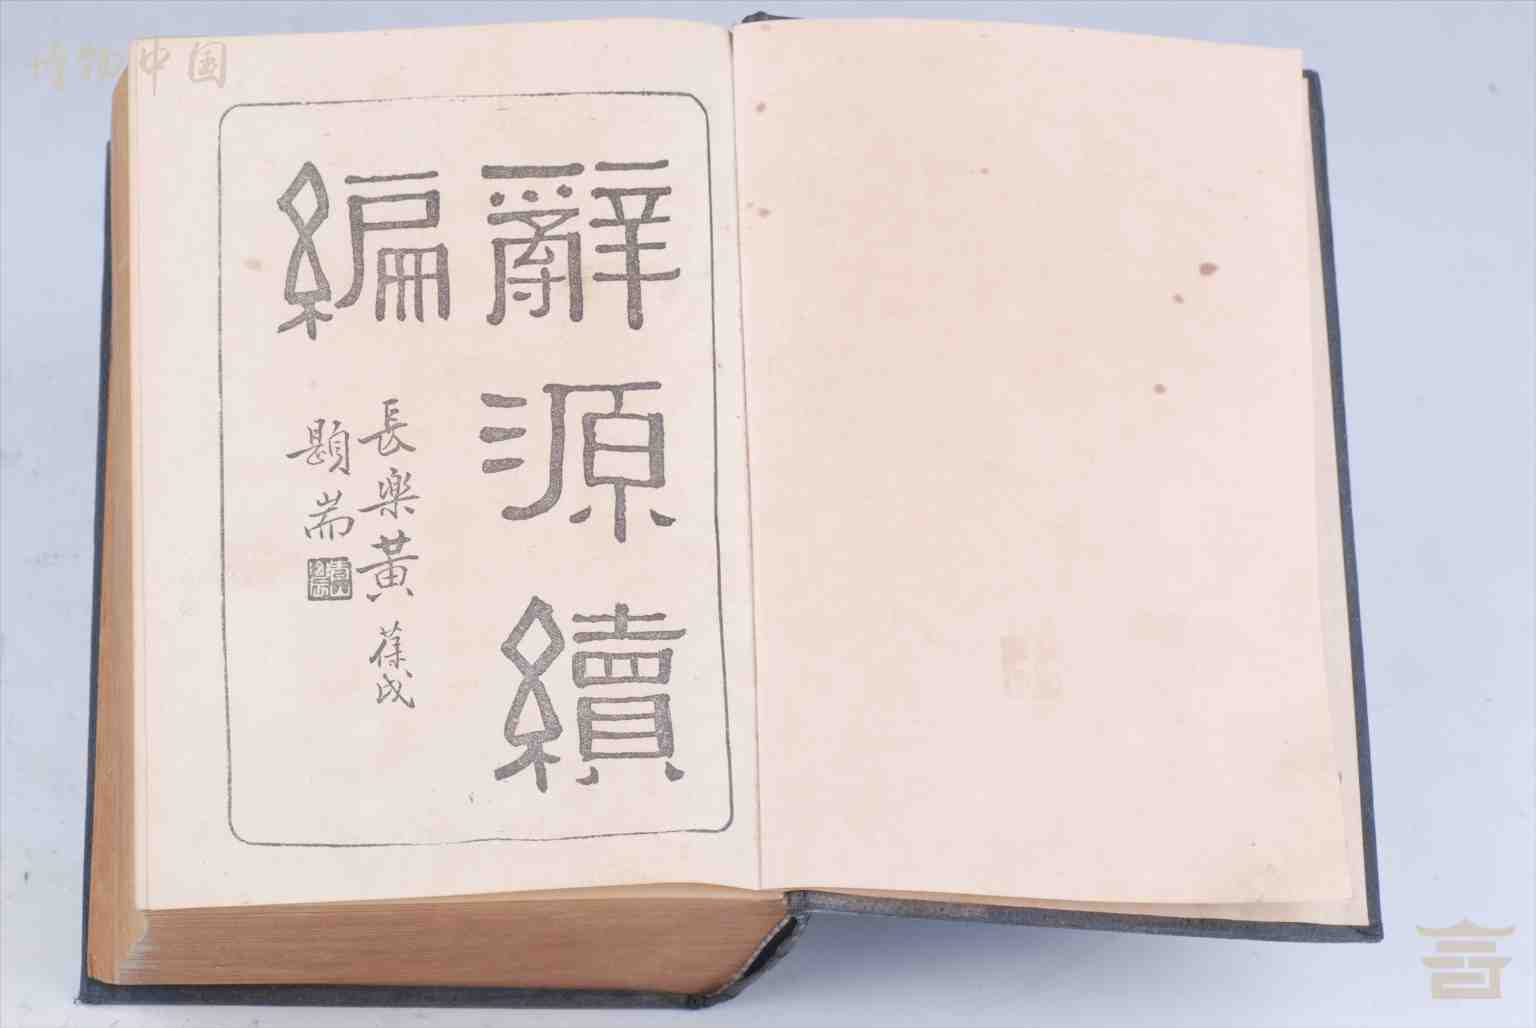 辭源續
編
長樂黃葆戉
題耑
博物中国